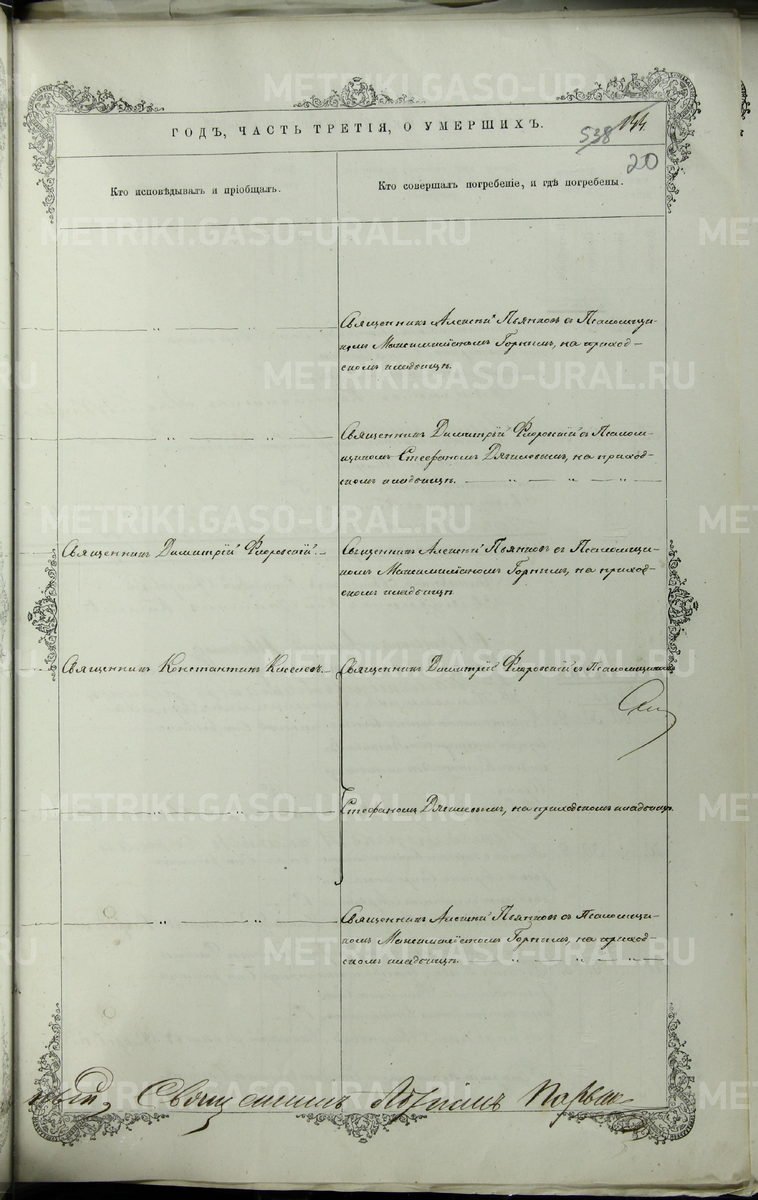 ГОДЪ, ЧАСТЬ ТРЕТІЯ, О УМЕРШИХЪ.
538 144
20
Кто исповѣдывалъ и пріобщалъ.
Кто совершалъ погребеніе, и гдѣ погребены.
Священникъ Алексій Пьянковъ съ Псаломщи-
комъ Максимиліаномъ Горнымъ, на приход-
скомъ кладбищѣ.
Священникъ Димитрій Флоровскій съ Псалом-
щикомъ Стефаномъ Дягилевымъ, на приход-
скомъ кладбищѣ.
Священникъ Димитрій Флоровскій.
Священникъ Алексій Пьянковъ съ Псаломщи-
комъ Максимиліаномъ Горнымъ, на приход-
скомъ кладбищѣ
Священникъ Константинъ Киселевъ.
Священникъ Димитрій Флоровскій съ Псаломщикомъ
Стефаномъ Дягилевымъ, на приходскомъ кладбищѣ.
Священникъ Алексій Пьянковъ съ Псаломщи-
комъ Максимиліаномъ Горнымъ, на приход-
скомъ кладбищѣ.
Священникъ
METRIKI.GASO-URAL.RU